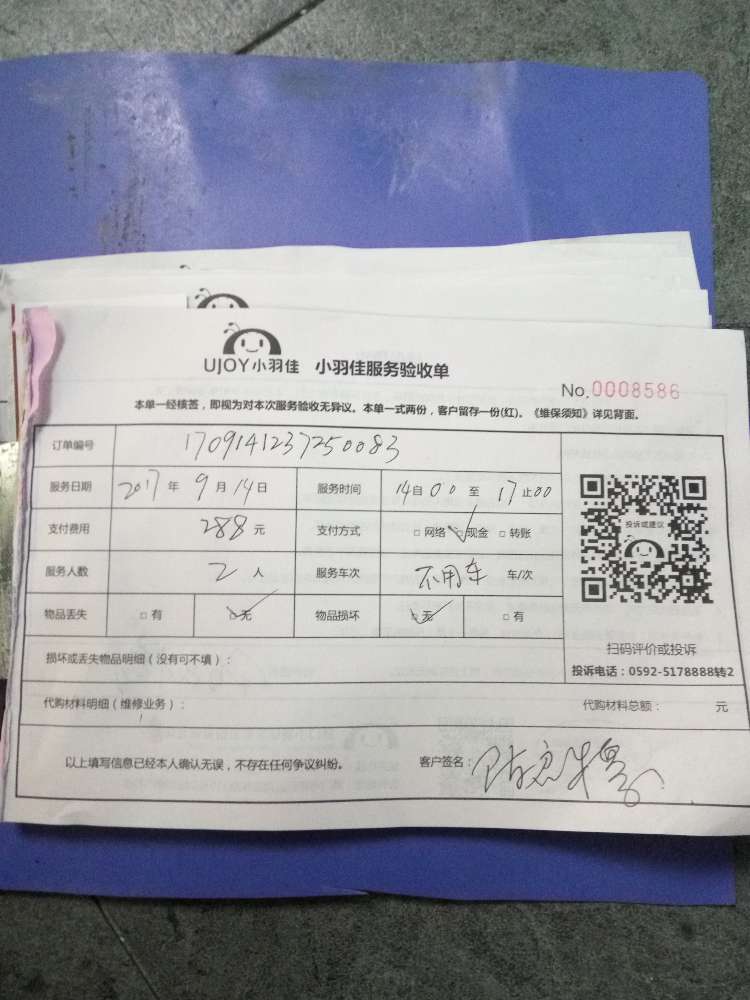 UJOY小羽佳 小羽佳服务验收单
No.0008586
本单一经核签，即视为对本次服务验收无异议。本单一式两份，客户留存一份(红)。《维保须知》详见背面。
订单编号 1709141237250083
服务日期 2017年 9月14日 服务时间 14自00至17止00
支付费用 288元 支付方式 □网络 ☑现金 □转账
投诉或建议
服务人数 2人 服务车次 不用车 车/次
物品丢失 □有 ☑无 物品损坏 ☑无 □有
扫码评价或投诉
损坏或丢失物品明细（没有可不填）：
投诉电话：0592-5178888转2
代购材料明细（维修业务）： 代购材料总额： 元
以上填写信息已经本人确认无误，不存在任何争议纠纷。 客户签名：